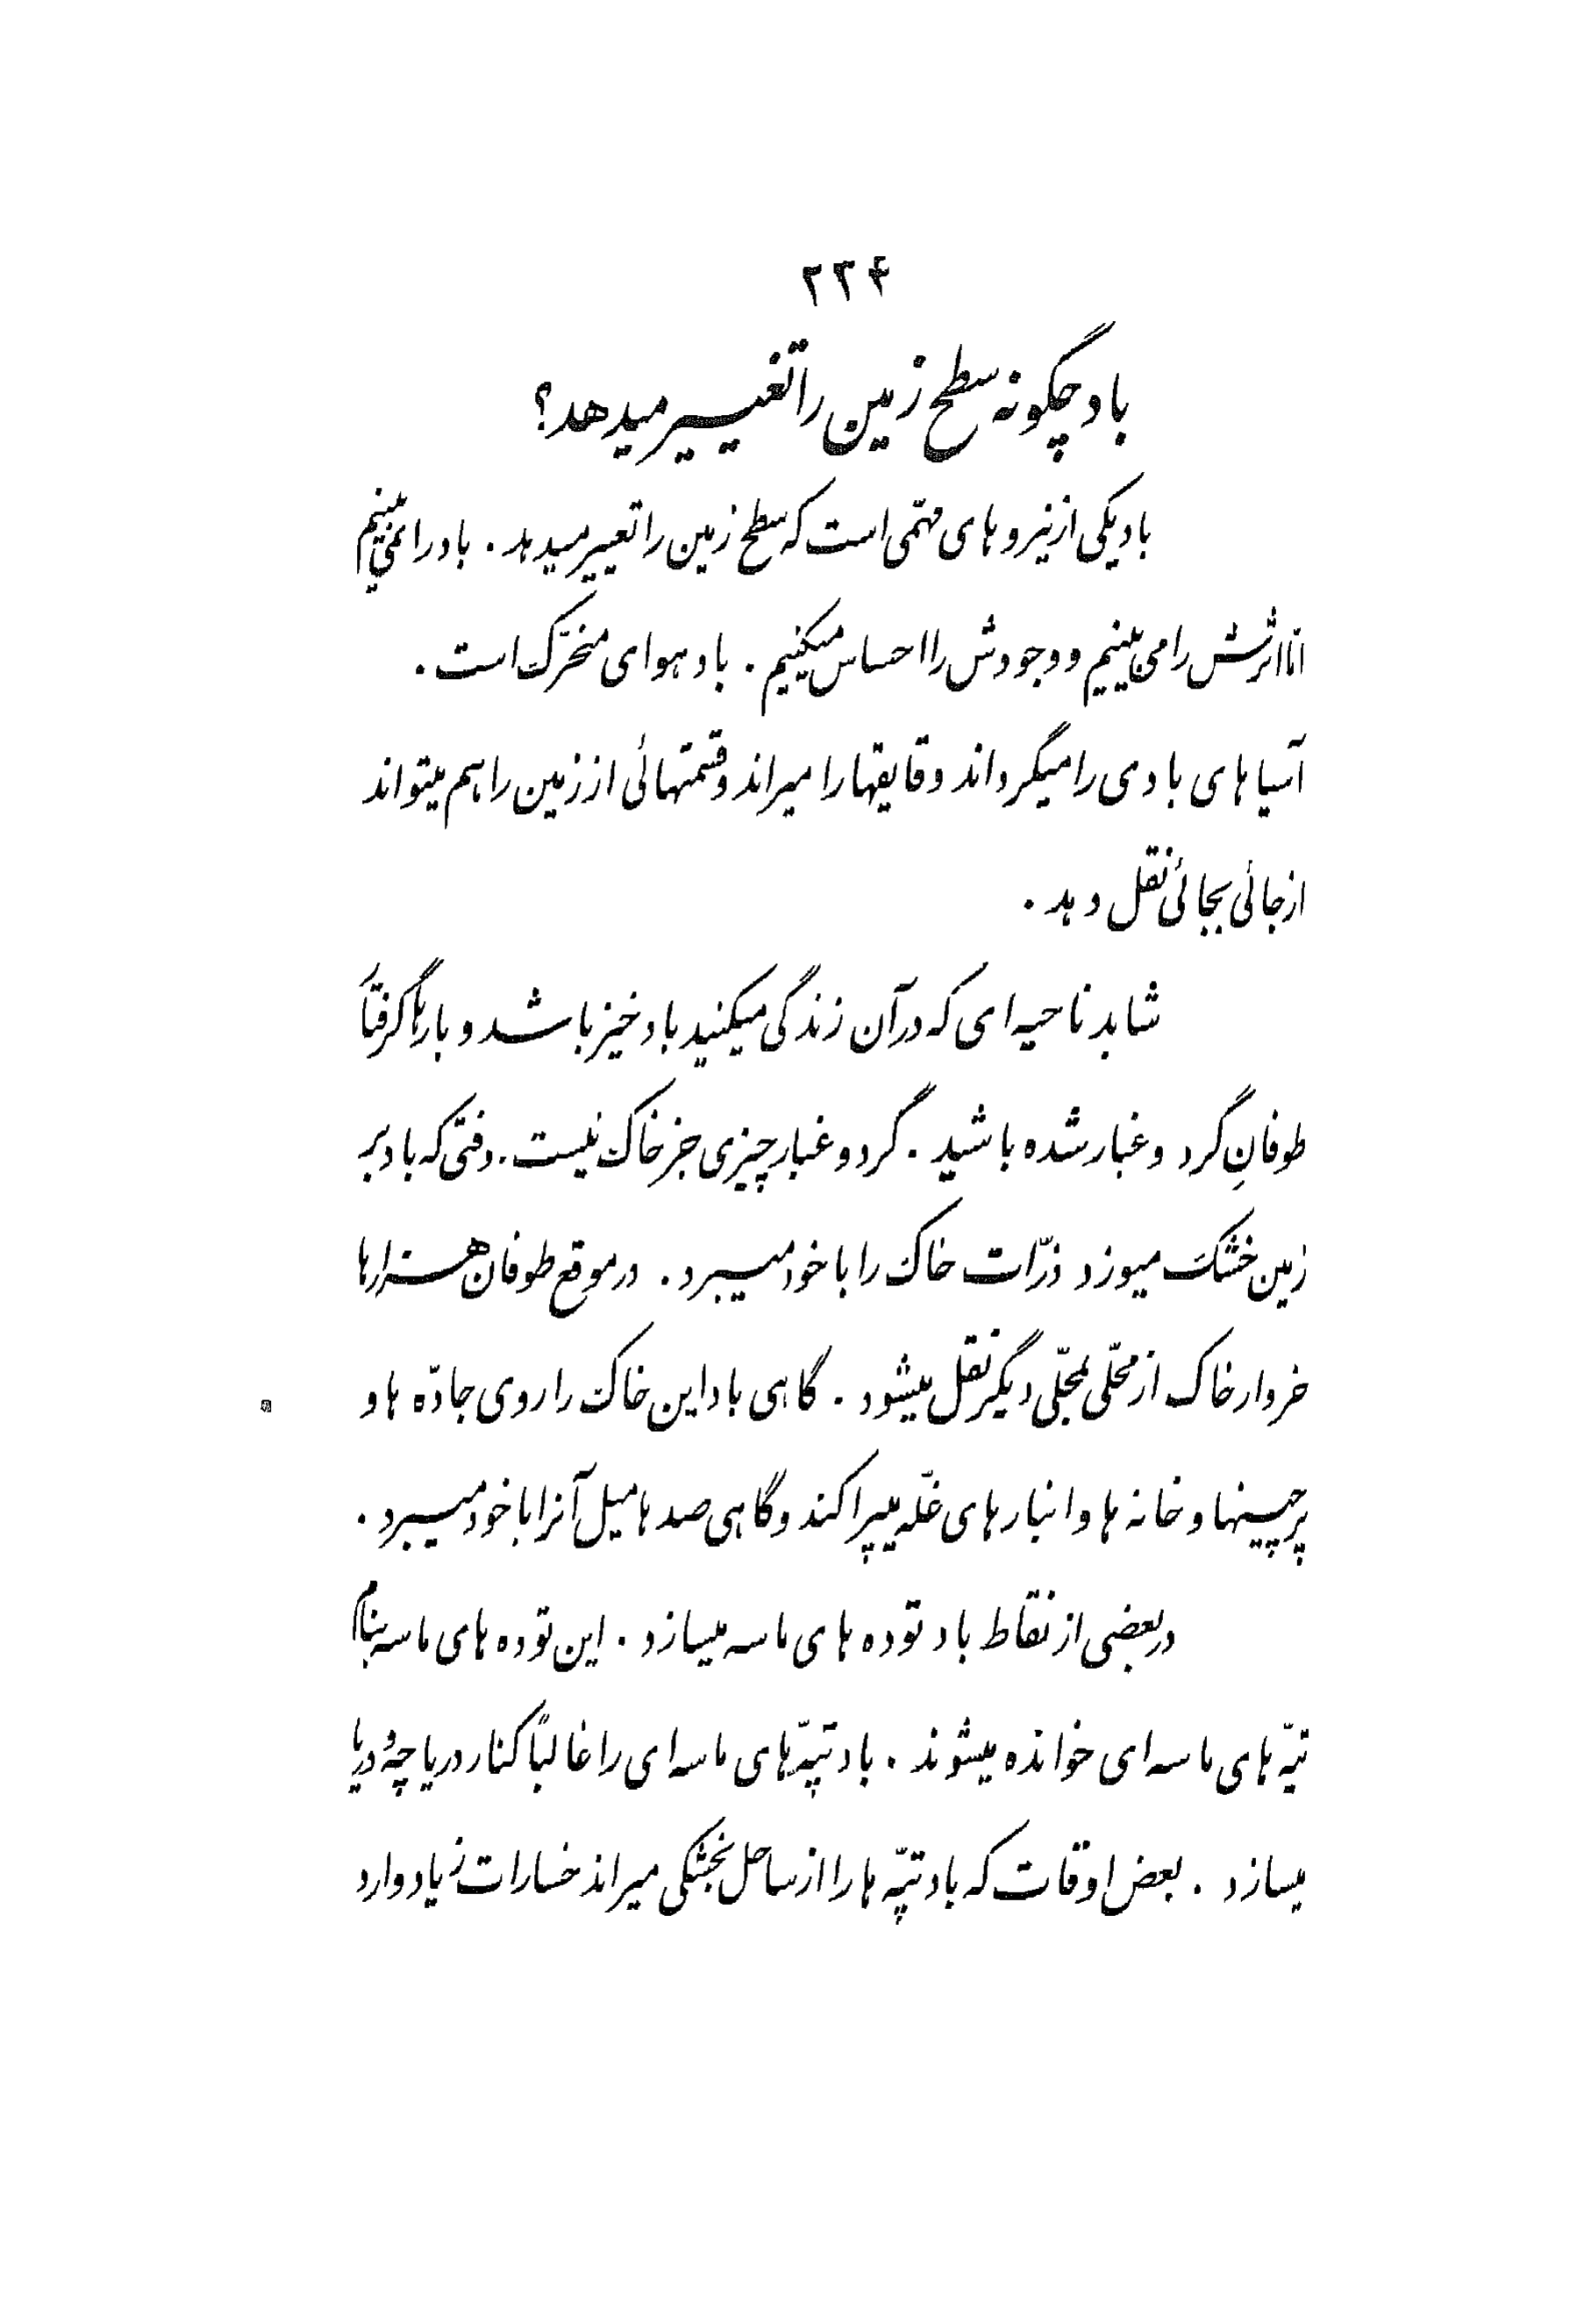 ۲۲۴
باد چگونه سطح زمین را تغییر میدهد؟
باد یکی از نیروهای مهمّی است که سطح زمین را تغییر میدهد . باد را نمی بینیم
امّا اثرش را می بینیم و وجودش را احساس میکنیم . باد هوای متحرّک است .
آسیاهای بادی را میگرداند و قایقها را میراند و قسمتهائی از زمین را هم میتواند
از جائی بجائی نقل دهد .
شاید ناحیه ای که در آن زندگی میکنید باد خیز باشد و بارها گرفتار
طوفانِ گرد و غبار شده باشید . گرد و غبار چیزی جز خاک نیست . وقتی که باد بر
زمین خشک میوزد ذرّات خاک را با خود میبرد . در موقع طوفان هزارها
خروار خاک از محلّی بمحلّی دیگر نقل میشود . گاهی باد این خاک را روی جادّه ها و
پرچینها و خانه ها و انبارهای غلّه میپراکند و گاهی صدها میل آنرا با خود میبرد .
در بعضی از نقاط باد توده های ماسه میسازد . این توده های ماسه بنام
تپّه های ماسه ای خوانده میشوند . باد تپّه های ماسه ای را غالباً کنار دریاچه و دریا
میسازد . بعض اوقات که باد تپّه ها را از ساحل بخشکی میراند خسارات زیاد وارد